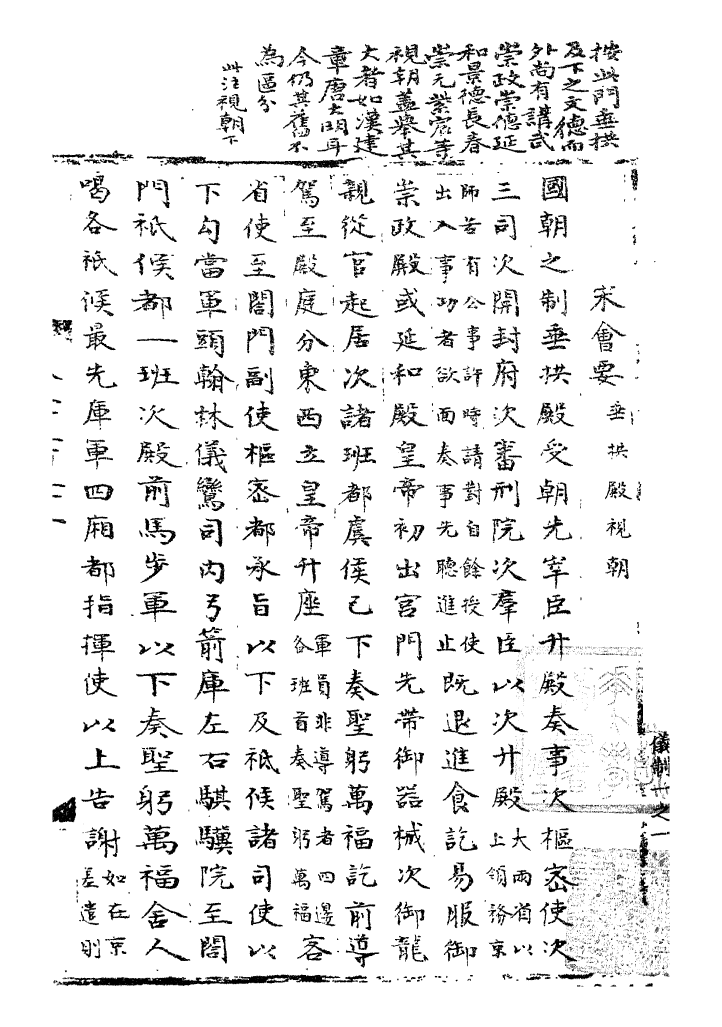 按此門垂拱
及下之文德而
外尚有講武
崇政崇德延
和景德長春
崇元紫宸等
視朝蓋舉其
大者如漢建
章唐大明耳
今仍其舊不
為區分
此注視朝下
宋會要 垂拱殿視朝
國朝之制垂拱殿受朝先宰臣升殿奏事次樞密使次
三司次開封府次審刑院次羣臣以次升殿大兩省以上領務京
師若有公事許時請對自餘授使
出入事功者欲面奏事先聽進止既退進食訖易服御
崇政殿或延和殿皇帝初出宮門先帶御器械次御龍
親從官起居次諸班都虞候已下奏聖躬萬福訖前導
駕至殿庭分東西立皇帝升座軍員非導駕者四邊各班首奏聖躬萬福客
省使至閤門副使樞密都承旨以下及祗候諸司使以
下勾當軍頭翰林儀鸞司內弓箭庫左右騏驥院至閤
門祗候都一班次殿前馬步軍以下奏聖躬萬福舍人
喝各祗候最先庫軍四廂都指揮使以上告謝如在京差遣則
儀制一之一